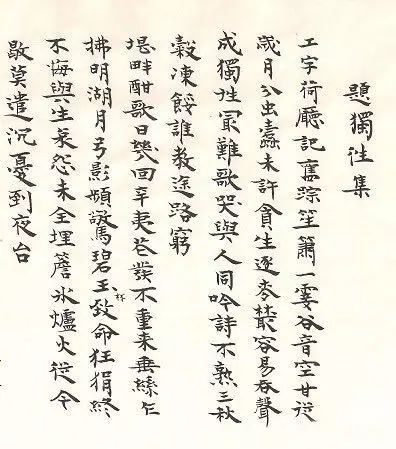 題獨往集
工字荷廳記舊踪笙簫一霎谷音空甘從
歲月分虫蠹未許貪生逐麥叢容易吞聲
成獨往冣難歌哭與人同吟詩不熟三秋
穀凍餒誰教途路窮
堤畔酣歌日幾回辛夷花發不重來垂絲乍
拂明湖月弓影頻驚碧玉杯致命狂狷終
不悔與生哀怨未全埋簷冰爐火從今
敬莫遣沉憂到夜台